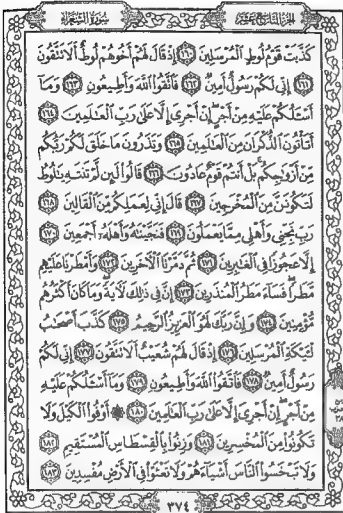 الجزء التاسع عشر سورة الشعراء
كَذَّبَتْ قَوْمُ لُوطٍ الْمُرْسَلِينَ ١٦٠ إِذْ قَالَ لَهُمْ أَخُوهُمْ لُوطٌ أَلَا تَتَّقُونَ
١٦١ إِنِّي لَكُمْ رَسُولٌ أَمِينٌ ١٦٢ فَاتَّقُوا اللَّهَ وَأَطِيعُونِ ١٦٣ وَمَا
أَسْـَٔلُكُمْ عَلَيْهِ مِنْ أَجْرٍ إِنْ أَجْرِيَ إِلَّا عَلَىٰ رَبِّ الْعَٰلَمِينَ ١٦٤
أَتَأْتُونَ الذُّكْرَانَ مِنَ الْعَٰلَمِينَ ١٦٥ وَتَذَرُونَ مَا خَلَقَ لَكُمْ رَبُّكُم
مِّنْ أَزْوَٰجِكُم بَلْ أَنتُمْ قَوْمٌ عَادُونَ ١٦٦ قَالُوا لَئِن لَّمْ تَنتَهِ يَٰلُوطُ
لَتَكُونَنَّ مِنَ الْمُخْرَجِينَ ١٦٧ قَالَ إِنِّي لِعَمَلِكُم مِّنَ الْقَالِينَ ١٦٨
رَبِّ نَجِّنِي وَأَهْلِي مِمَّا يَعْمَلُونَ ١٦٩ فَنَجَّيْنَٰهُ وَأَهْلَهُ أَجْمَعِينَ ١٧٠
إِلَّا عَجُوزًا فِي الْغَٰبِرِينَ ١٧١ ثُمَّ دَمَّرْنَا الْآخَرِينَ ١٧٢ وَأَمْطَرْنَا عَلَيْهِم
مَّطَرًا فَسَاءَ مَطَرُ الْمُنذَرِينَ ١٧٣ إِنَّ فِي ذَٰلِكَ لَآيَةً وَمَا كَانَ أَكْثَرُهُم
مُّؤْمِنِينَ ١٧٤ وَإِنَّ رَبَّكَ لَهُوَ الْعَزِيزُ الرَّحِيمُ ١٧٥ كَذَّبَ أَصْحَٰبُ
لْـَٔيْكَةِ الْمُرْسَلِينَ ١٧٦ إِذْ قَالَ لَهُمْ شُعَيْبٌ أَلَا تَتَّقُونَ ١٧٧ إِنِّي لَكُمْ
رَسُولٌ أَمِينٌ ١٧٨ فَاتَّقُوا اللَّهَ وَأَطِيعُونِ ١٧٩ وَمَا أَسْـَٔلُكُمْ عَلَيْهِ
مِنْ أَجْرٍ إِنْ أَجْرِيَ إِلَّا عَلَىٰ رَبِّ الْعَٰلَمِينَ ١٨٠ ۞ أَوْفُوا الْكَيْلَ وَلَا
تَكُونُوا مِنَ الْمُخْسِرِينَ ١٨١ وَزِنُوا بِالْقِسْطَاسِ الْمُسْتَقِيمِ ١٨٢
وَلَا تَبْخَسُوا النَّاسَ أَشْيَاءَهُمْ وَلَا تَعْثَوْا فِي الْأَرْضِ مُفْسِدِينَ ١٨٣
٣٧٤